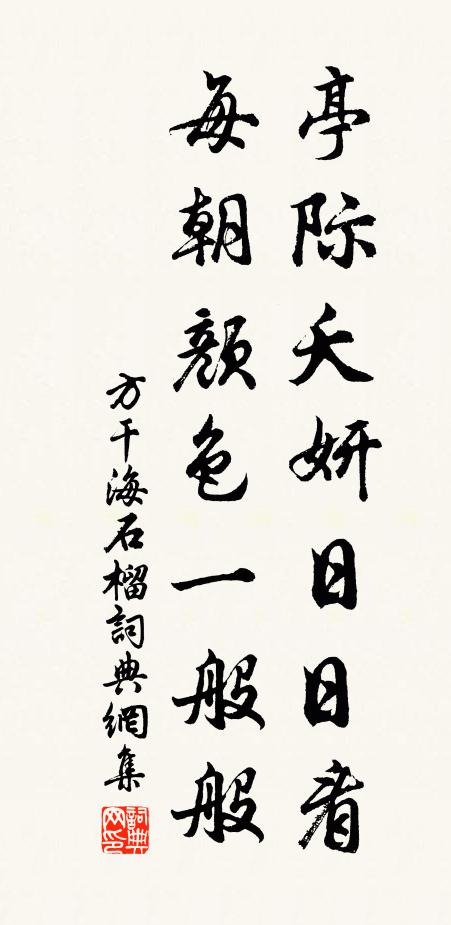 亭际夭妍日日看
每朝顏色一般般
方干海石榴詞典網集
詞典
网印